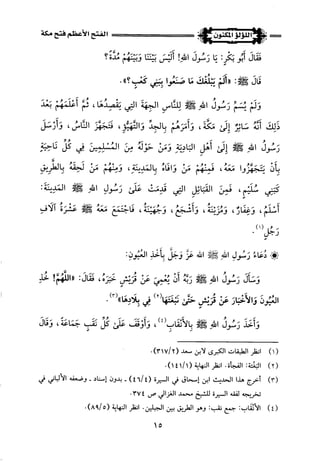 اللؤلؤ المكنون
الفتح الأعظم فتح مكة
فَقَالَ أَبُو بَكْرٍ: يَا رَسُولَ اللهِ! أَلَيْسَ بَيْنَنَا وَبَيْنَهُمْ مُدَّةٌ؟
قَالَ ﷺ: «أَلَمْ يَبْلُغْكَ مَا صَنَعُوا بِبَنِي كَعْبٍ؟».
وَلَمْ يُسَمِّ رَسُولُ اللهِ ﷺ لِلنَّاسِ الجِهَةَ التِي يَقْصِدُهَا، ثُمَّ أَعْلَمَهُمْ بَعْدَ
ذَلِكَ أَنَّهُ سَائِرٌ إِلَى مَكَّةَ، وَأَمَرَهُمْ بِالجِدِّ وَالتَّهَيُّؤِ، فَتَجَهَّزَ النَّاسُ، وَأَرْسَلَ
رَسُولُ اللهِ ﷺ إِلَى أَهْلِ البَادِيَةِ وَمَنْ حَوْلَهُ مِنَ المُسْلِمِينَ فِي كُلِّ نَاحِيَةٍ
بِأَنْ يَتَجَهَّزُوا مَعَهُ، فَمِنْهُمْ مَنْ وَافَاهُ بِالمَدِينَةِ، وَمِنْهُمْ مَنْ لَحِقَهُ بِالطَّرِيقِ
كَبَنِي سُلَيْمٍ، فَمِنَ القَبَائِلِ التِي قَدِمَتْ عَلَى رَسُولِ اللهِ ﷺ المَدِينَةَ:
أَسْلَمُ، وَغِفَارُ، وَمُزَيْنَةُ، وَأَشْجَعُ، وَجُهَيْنَةُ، فَاجْتَمَعَ مَعَهُ ﷺ عَشْرَةُ آلَافِ
رَجُلٍ(١).
* دُعَاءُ رَسُولِ اللهِ ﷺ اللهَ عَزَّ وَجَلَّ بِأَخْذِ العُيُونِ:
وَسَأَلَ رَسُولُ اللهِ ﷺ رَبَّهُ أَنْ يُعْمِيَ عَنْ قُرَيْشٍ خَبَرَهُ، فَقَالَ: «اللَّهُمَّ! خُذِ
العُيُونَ وَالأَخْبَارَ عَنْ قُرَيْشٍ حَتَّى نَبْغَتَهَا(٢) فِي بِلَادِهَا»(٣).
وَأَخَذَ رَسُولُ اللهِ ﷺ بِالأَنْقَابِ(٤)، وَأَوْقَفَ عَلَى كُلِّ نَقْبٍ جَمَاعَةً، وَقَالَ
(١) انظر الطبقات الكبرى لابن سعد (٣١٧/٢).
(٢) البَغْتَة: الفجأة. انظر النهاية (١٤١/١).
(٣) أخرج هذا الحديث ابن إسحاق في السيرة (٤٦/٤) - بدون إسناد - وضعفه الألباني في
تخريجه لفقه السيرة للشيخ محمد الغزالي ص ٣٧٤.
(٤) الأنْقَاب: جمع نقب: وهو الطريق بين الجبلين. انظر النهاية (٨٩/٥).
١٥